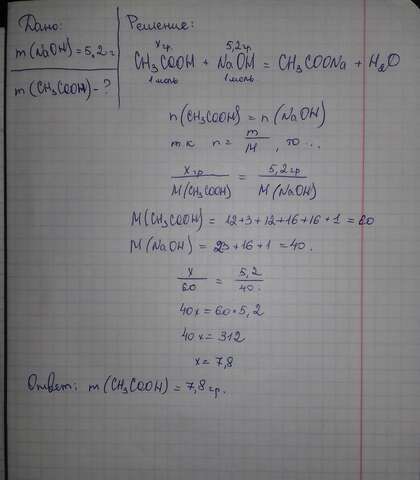 Дано:
m(NaOH) = 5,2 г
m(CH₃COOH) - ?
Решение:
x гр. 5,2 гр
CH₃COOH + NaOH = CH₃COONa + H₂O
1 моль 1 моль
n(CH₃COOH) = n(NaOH)
т.к n = m/M, то ...
x гр/M(CH₃COOH) = 5,2 гр/M(NaOH)
M(CH₃COOH) = 12+3+12+16+16+1 = 60
M(NaOH) = 23+16+1 = 40.
x/60 = 5,2/40.
40x = 60•5,2
40x = 312
x = 7,8
Ответ: m(CH₃COOH) = 7,8 гр.